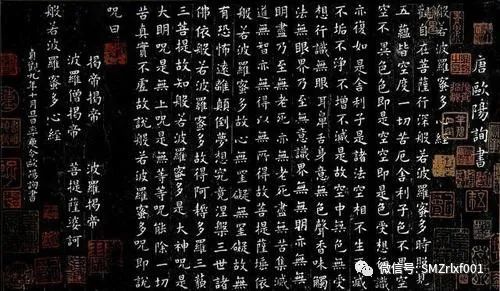 唐歐陽詢書
般若波羅蜜多心經
觀自在菩薩行深般若波羅蜜多時照見
五蘊皆空度一切苦厄舍利子色不異空
空不異色色即是空空即是色受想行識
亦復如是舍利子是諸法空相不生不滅
不垢不淨不增不減是故空中無色無受
想行識無眼耳鼻舌身意無色聲香味觸
法無眼界乃至無意識界無無明亦無無
明盡乃至無老死亦無老死盡無苦集滅
道無智亦無得以無所得故菩提薩埵依
般若波羅蜜多故心無罣礙無罣礙故無
有恐怖遠離顛倒夢想究竟涅槃三世諸
佛依般若波羅蜜多故得阿耨多羅三藐
三菩提故知般若波羅蜜多是大神呪是
大明呪是無上呪是無等等呪能除一切
苦真實不虛故說般若波羅蜜多呪即說
呪曰
揭帝揭帝 波羅揭帝
波羅僧揭帝 菩提薩婆訶
般若波羅蜜多心經
貞觀九年十月旦日率更令歐陽詢書
微信号: SMZrlxf001